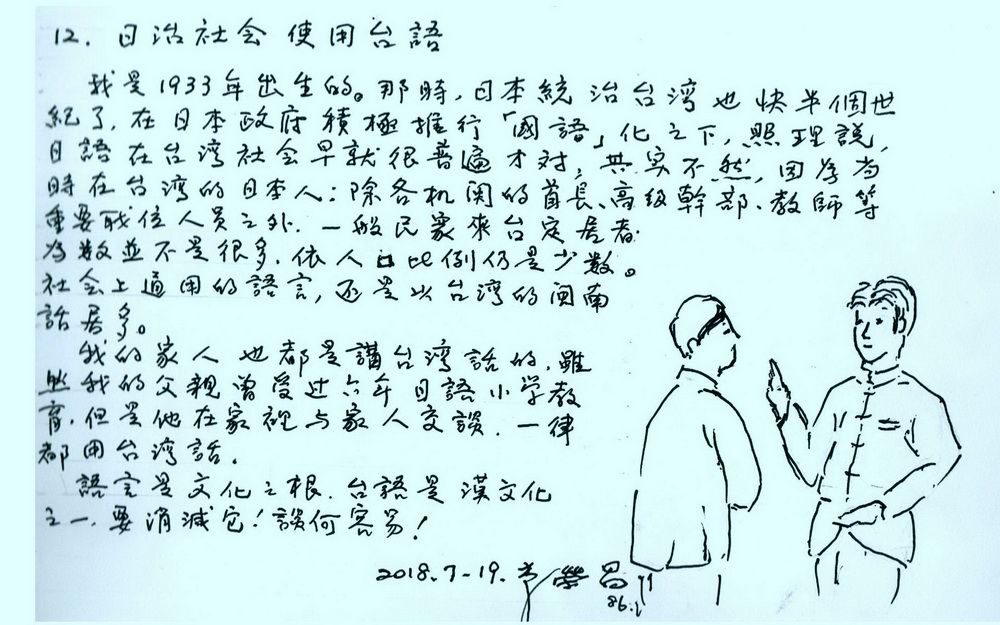 12. 日治社会使用台語
我是1933年出生的。那時,日本統治台湾也快半個世
紀了,在日本政府積極推行「國語」化之下,照理說,
日語在台湾社会早就很普遍才对,其实不然,因為当
時在台湾的日本人:除各机関的首長、高級幹部、教師等
重要職位人員之外,一般民眾來台定居者
为数並不是很多,依人口比例仍是少数。
社会上通用的語言,还是以台湾的闽南
話居多。
我的家人也都是講台湾話的,雖
然我的父親曾受过六年日語小学教
育,但是他在家裡与家人交談,一律
都用台湾話。
語言是文化之根,台語是漢文化
之一,要消滅它!談何容易!
2018.7-19. 榮昌
86.